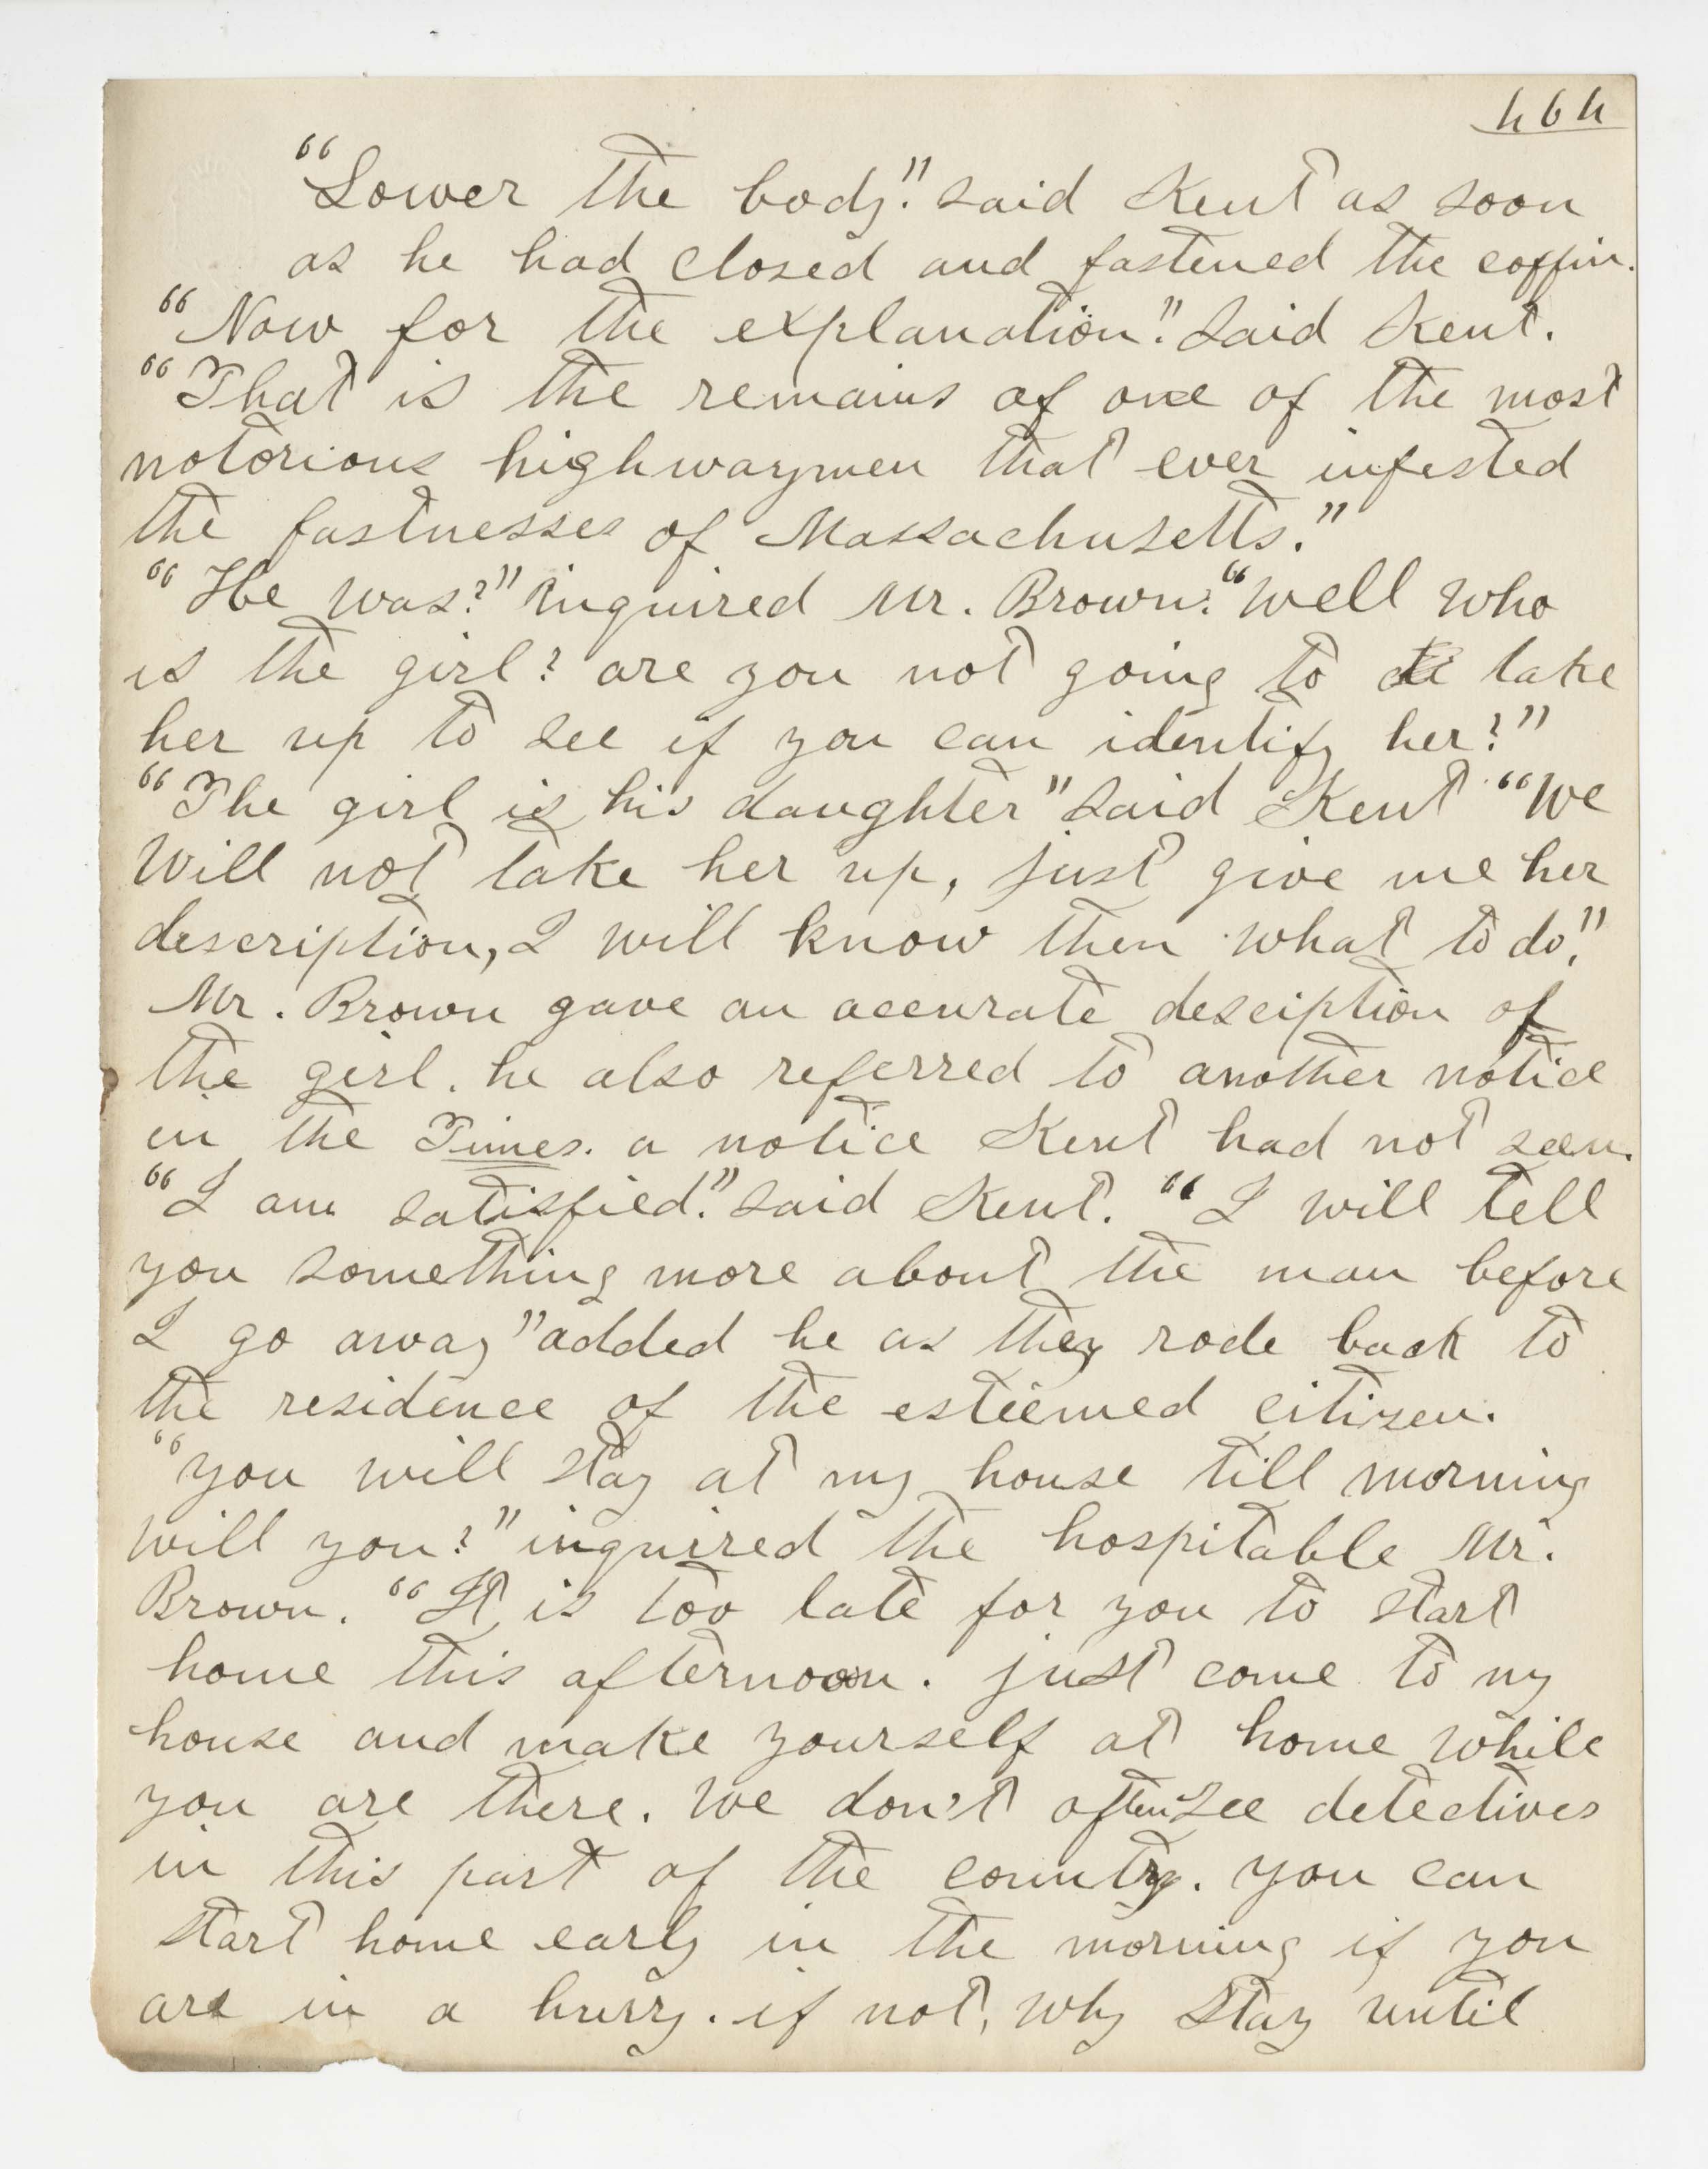 464
"Lower the body." said Kent as soon
as he had closed and fastened the coffin.
"Now for the explanation." said Kent.
"That is the remains of one of the most
notorious highwaymen that ever infested
the fastnesses of Massachusetts."
"He was?" inquired Mr. Brown. "well who
is the girl? are you not going to take
her up to see if you can identify her?"
"The girl is his daughter" said Kent "We
will not take her up, just give me her
description, I will know then what to do."
Mr. Brown gave an accurate desciption of
the girl. he also referred to another notice
in the Times. a notice Kent had not seen.
"I am satisfied." said Kent. "I will tell
you something more about the man before
I go away" added he as they rode back to
the residence of the esteemed citizen.
"you will stay at my house till morning
will you?" inquired the hospitable Mr.
Brown. "It is too late for you to start
home this afternoon. just come to my
house and make yourself at home while
you are there. We don't often see detectives
in this part of the country. you can
start home early in the morning if you
are in a hurry. if not, why stay until